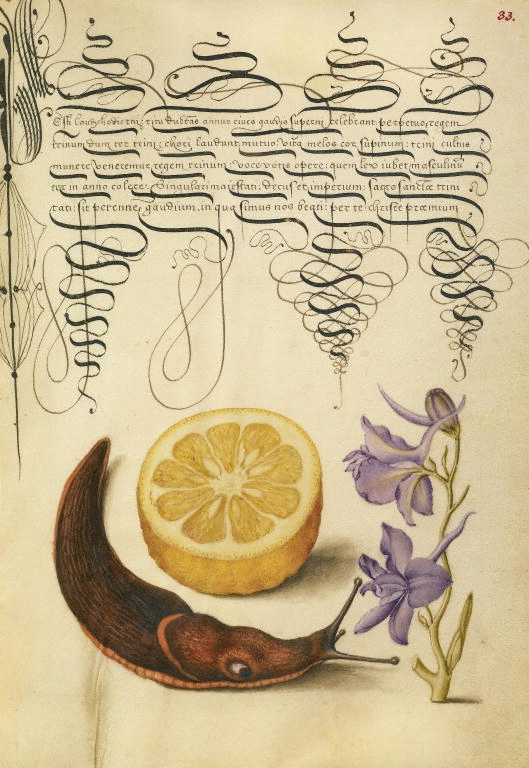 33.
Esse laudis hodierni: triu dulens annuo cives gaudio superni celebrant perpetuo, regem
trinum dum ter trini: chori laudant mutuo: Vita melos cor supinum: trini cultus
munere Veneremur, regem trinum Voce votis opere: quem lex iubet masculinu
ter in anno colere. Singulari maiestati: decus et imperium: sacro sanctæ trini
tati: sit perenne, gaudium, in qua simus nos beati: per te christe præmium